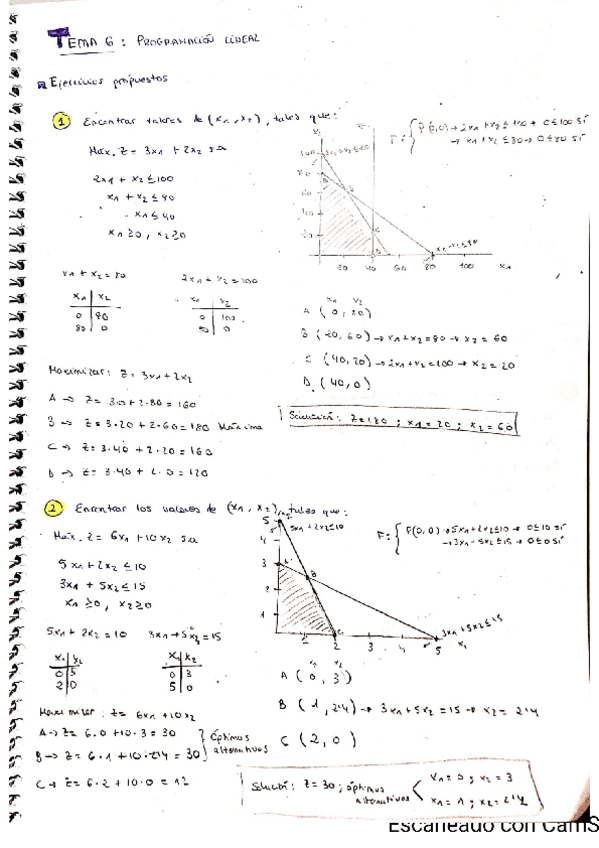 TEMA 6: PROGRAMACIÓN LINEAL
Ejercicios propuestos
1 Encontrar valores de (x1, x2), tales que:
Máx. Z = 3x1 + 2x2 s.a
2x1 + x2 ≤ 100
x1 + x2 ≤ 80
x1 ≤ 40
x1 ≥ 0, x2 ≥ 0
F: { P(0,0) → 2x1 + x2 ≤ 100 → 0 ≤ 100 sí
→ x1 + x2 ≤ 80 → 0 ≤ 80 sí
x2
100
80
60
40
20
20 40 60 80 100 x1
x1 + x2 = 80
x1 | x2
0 | 80
80 | 0
2x1 + x2 = 100
x1 | x2
0 | 100
50 | 0
x1 x2
A (0, 80)
B (20, 60) → x1 + x2 = 80 → x2 = 60
C (40, 20) → 2x1 + x2 = 100 → x2 = 20
D (40, 0)
Maximizar: Z = 3x1 + 2x2
A → Z = 3·0 + 2·80 = 160
B → Z = 3·20 + 2·60 = 180 Máximo
C → Z = 3·40 + 2·20 = 160
D → Z = 3·40 + 2·0 = 120
Solución: Z = 180 ; x1 = 20 ; x2 = 60
2 Encontrar los valores de (x1, x2), tales que:
Máx. Z = 6x1 + 10x2 s.a
5x1 + 2x2 ≤ 10
3x1 + 5x2 ≤ 15
x1 ≥ 0, x2 ≥ 0
5x1 + 2x2 ≤ 10
F: { P(0,0) → 5x1 + 2x2 ≤ 10 → 0 ≤ 10 sí
5
4
3
2
1
1 2 3 4 5 x1
3x1 + 5x2 ≤ 15
5x1 + 2x2 = 10
x1 | x2
0 | 5
2 | 0
3x1 + 5x2 = 15
x1 | x2
0 | 3
5 | 0
x1 x2
A (0, 3)
B (1, 2'4) → 3x1 + 5x2 = 15 → x2 = 2'4
C (2, 0)
Maximizar: Z = 6x1 + 10x2
A → Z = 6·0 + 10·3 = 30
B → Z = 6·1 + 10·2'4 = 30
} Óptimos alternativos
C → Z = 6·2 + 10·0 = 12
Solución: Z = 30 ; óptimos alternativos
x1 = 0 ; x2 = 3
x1 = 1 ; x2 = 2'4
Escaneado con CamS